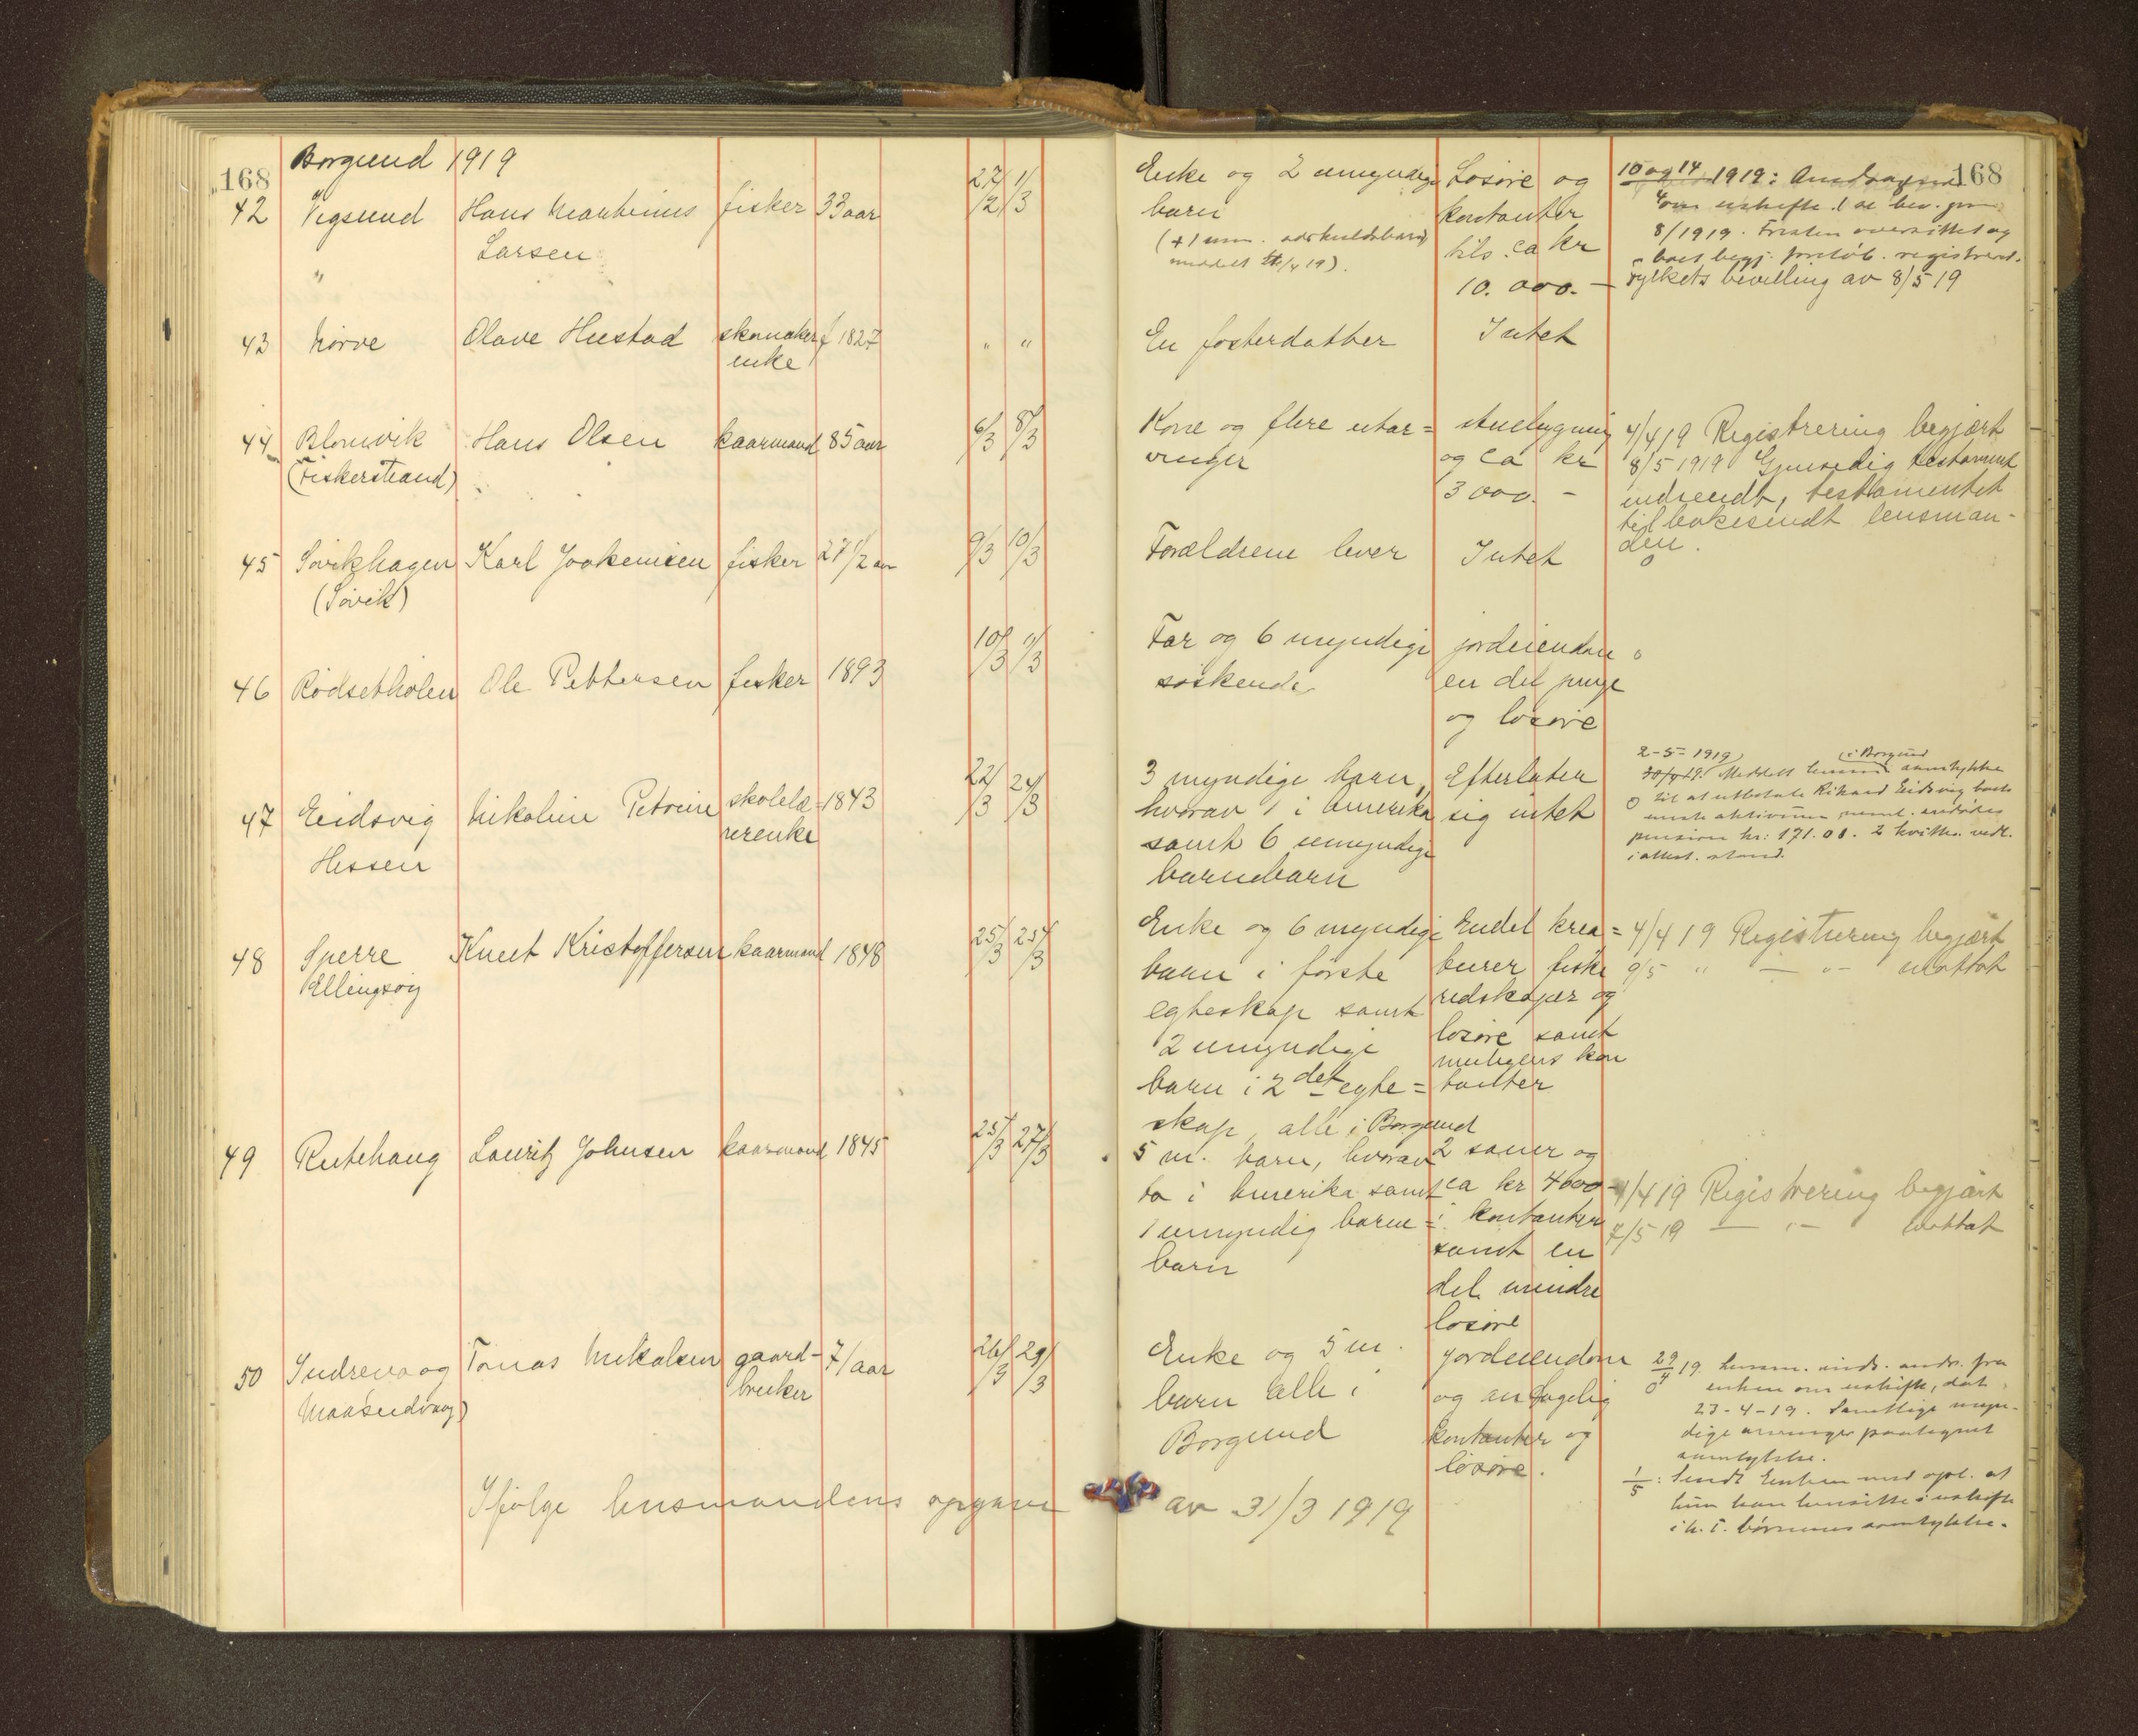 168
Borgund 1919
42 Vegsund Hans Martinius fisker 33 aar 27/2 1/3
" Larsen
43 Nørve Olave Hustad skomaker f 1827 " "
enke
44 Blomvik Hans Olsen kaarmand 85 aar 6/3 8/3
(Fiskerstrand)
45 Søvikhagen Karl Joakemsen fisker 27 1/2 aar 9/3 10/3
(Søvik)
46 Rødsetholen Ole Pettersen fisker 1893 10/3 11/3
47 Eidsvig Nikoline Petrine skolelæ= 1843 22/3 24/3
Hessen rerenke
48 Sperre Knut Kristoffersen kaarmand 1848 25/3 25/3
Ellingsøy
49 Rutehaug Lauritz Johnsen kaarmand 1845 25/3 27/3
50 Indrevaag Tomas Mikalsen gaard- 71 aar 26/3 29/3
Maaseidvaag) bruker
Ifølge lensmandens opgave
168
Enke og 2 umyndige Løsøre og
barn kontanter
(+ 1 um. adskuldsbarn tils. ca kr
meddelt /4 19). 10.000.-
10 og 14 1919: Andragende
om uskifte
8/1919. Fristen oversittet og
bort begj. foreløb. registrert.
Fylkets bevilling av 8/5 19
En fosterdatter Intet
Kone og flere utar= stuebygning
vinger og ca kr
3000.-
4/4 19 Registrering begjært
8/5 1919 Gjensidig testament
indsendt, testamentet
tilbakesendt lensman-
den.
Forældrene lever Intet
Far og 6 myndige jordeiendom
søskende en del penge
og løsøre
3 myndige barn, Efterlater
hvorav 1 i Amerika sig intet
samt 6 umyndige
barnebarn
2-5-1919 i Borgund
Meddelt lensm. samtykke
til at utbetale Rikard Eidsvig boets
eneste aktivum neml. indvidn.
pension kr: 171.01. 2 kvitter. vedl.
i attest. stand.
Enke og 6 myndige Endel krea=
barn i første turer fiske
egteskap samt redskaper og
2 umyndige løsøre samt
muligens kon
barn i 2det egte= tanter
skap, alle i Borgund
4/4 19 Registrering begjært
9/5 " — " — mottat
5 m. barn, hvorav 2 sauer og
to i Amerika samt ca kr 4000-
1 umyndig barne= i kontanter
barn samt en
del mindre
løsøre
4/4 19 Registrering begjært
7/5 19 — " — mottat
Enke og 5 m. jordeiendom
barn alle i og antagelig
Borgund kontanter og
løsøre.
29/4 19. Lensm. inds. andr. fra
enken om uskifte, dat.
23-4-19. Samtlige myn-
dige arvinger paategnet
samtykke.
1/5: Sendt Enken med opl. at
hun kan hensitte i uskifte
i h. t. børnenes samtykke.
av 31/3 1919